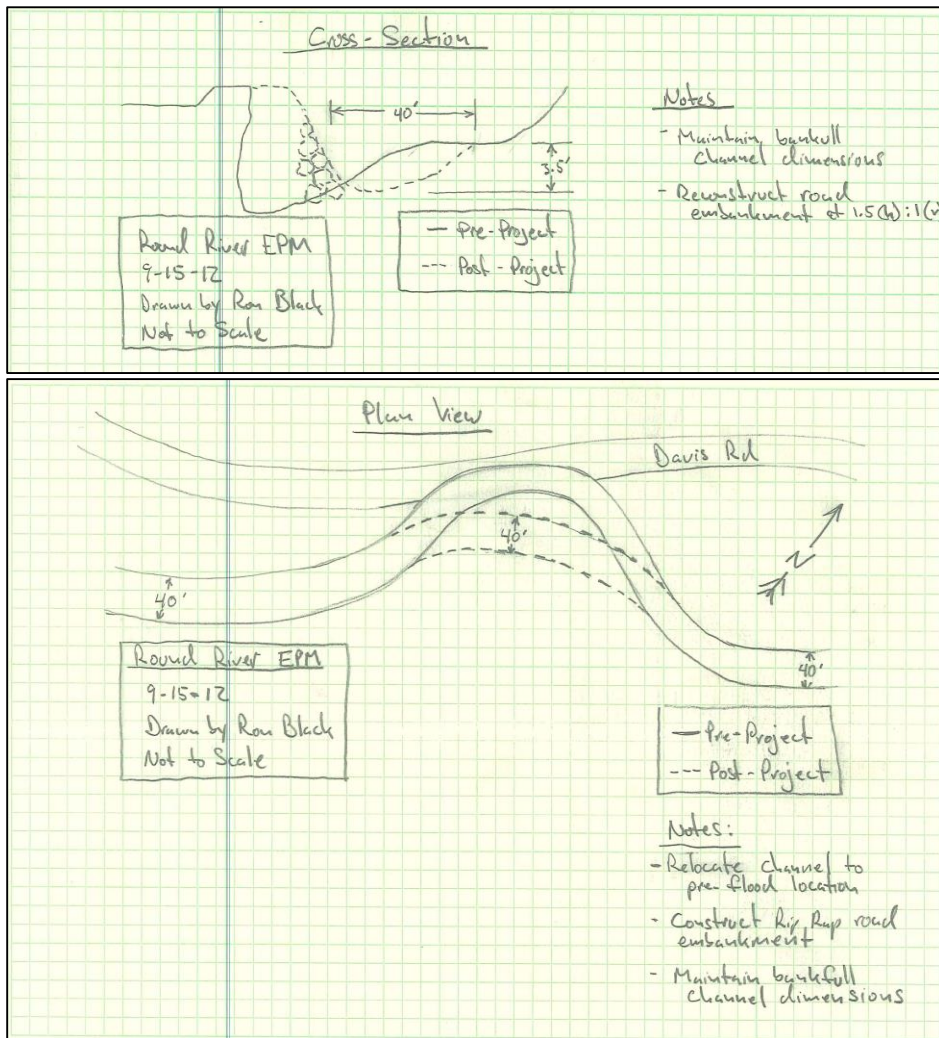 Cross-Section
40'
3.5'
Notes
- Maintain bankull
channel dimensions
- Reconstruct road
embankment at 1.5(h):1(v
Round River EPM
9-15-12
Drawn by Ron Black
Not to Scale
— Pre-Project
--- Post-Project
Plan View
Davis Rd
40'
N
40'
40'
Round River EPM
9-15-12
Drawn by Ron Black
Not to Scale
— Pre-Project
--- Post-Project
Notes:
- Relocate channel to
pre-flood location
- Construct Rip Rap road
embankment
- Maintain bankfull
channel dimensions